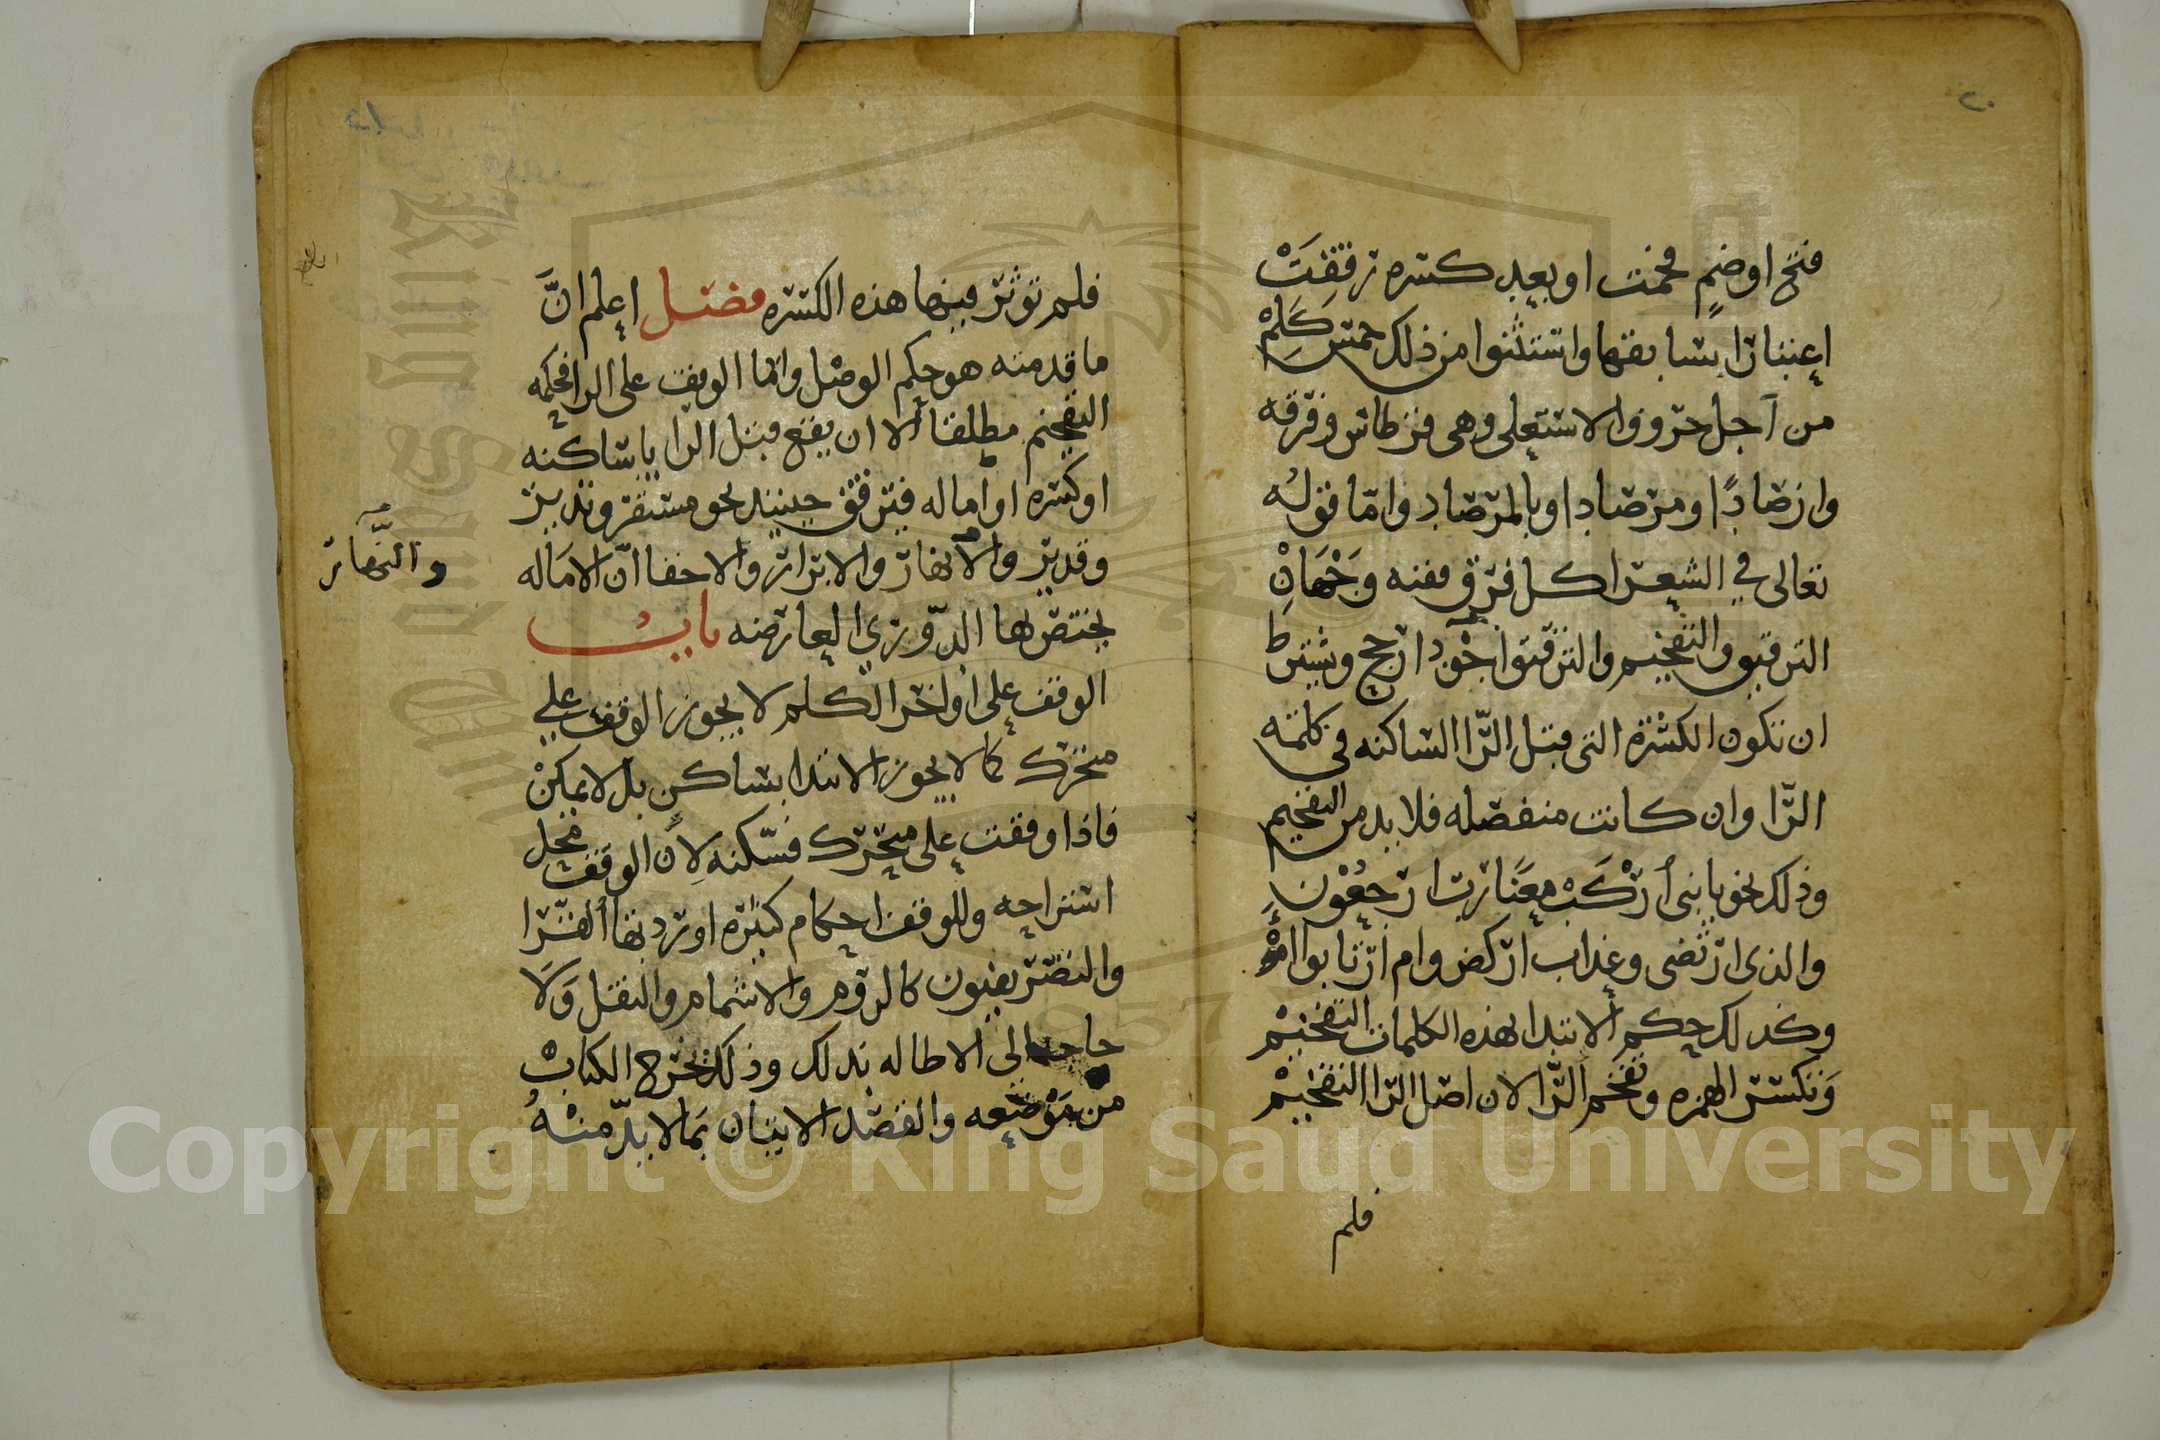 ٢٠
فتح او ضم فخمت او بعد كسره ترققت
اعتبارا بسابقها واستثنوا من ذلك خمس كلم
من اجل حروف الاستعلى وهى قرطاس وفرقه
وارصادًا ومرصادا وبالمرصاد وامّا قوله
تعالى في الشعرا كل فرق ففيه وَجْهَانِ
الترقيق والتفخيم والترقيق اجود ارجح ويشترط
ان تكون الكسْرة التى قبل الرّا الساكنه في كلمته
الرّا وان كانت منفصله فلا بد من التفخيم
وذلك نحو يابنى أرْكَبْ مَعَنَا رب ارْجِعُوْنِ
والذى ارتضى وعذاب اركض وام ارتابوا
وكذلك حكم الابتدا بهذه الكلمات التفخيْم
وَتكسر الهمزه وتفخم الرّا لان اصل الرّا التفخيْم
فلم
فلم تؤثر فيها هذه الكسره فصل اعلم انَّ
ما قدمته هو حكم الوصْل وامّا الوقف على الرا فحكمه
التفخيم مطلقا الا ان يقع قبل الرّا يا ساكنه
او كسره او اماله فيترقق حينيذ نحو مستقر ونذير
وقدير والانهار والابرار والاخفا انّ الامَاله
والنَّهار
يختصّ بها الدّوري العارضه بابْ
الوقف على اواخر الكلم لا يجوز الوقف على
متحرك كما لا يجوز الابتدا بساكن بل لا يمكنْ
فاذا وقفت على متحرك فسّكنه لِأن الوقف محل
استراحه وللوقف احكام كثيره اوردتها القرّا
والتصريفيون كالروم والاشمام والنقل وَلَا
حاجه الى الاطاله بذلك وذلك يخرج الكتابْ
من مَوْضعه والقصْد الاتيان بمَا لا بدّ منْهُ
Copyright © King Saud University
King Saud University
1957